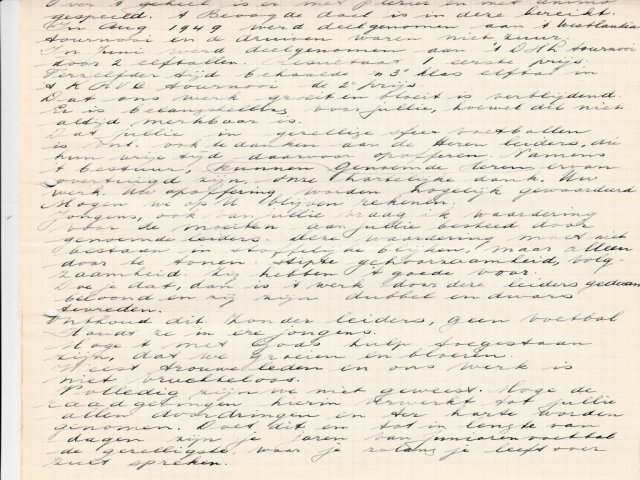 Over 't geheel is er met plezier en met animo
gespeeld. 't Beoogde doel is in deze bereikt.
In Aug 1949 werd deelgenomen aan 't Westlandia
tournooi de druiven waren niet zuur.
In Juni werd deelgenomen aan 't DHL tournooi
door 2 elftallen. Resultaat 1 eerste prijs.
Terzelfder tijd behaalde 'n 3e klas elftal in
't K.R.V.C tournooi de 2e prijs.
Dat ons werk groeit en bloeit is verblijdend.
Er is belangstelling voor jullie, hoewel dit niet
altijd merkbaar is.
Dat jullie in gezellige sfeer voetballen
is ook te danken aan de Heren leiders, die
hun vrije tijd daarvoor opofferen. Namens
't bestuur, kunnen genoemde heren ervan
overtuigd zijn, onze hartelijke dank. Uw
werk. Uw opoffering worden hogelijk gewaardeerd
Mogen we op U blijven rekenen.
Jongens, ook van jullie vraag ik waardering
voor de moeiten aan jullie besteed door
genoemde leiders. Deze waardering moet niet
bestaan in stoffelijke blijken, maar alleen
door te tonen stipte gehoorzaamheid, volg-
zaamheid. Zij hebben 't goede voor.
Doe je dat, dan is 't werk door deze leiders gedaan
beloond en zij zijn dubbel en dwars
tevreden.
Onthoud dit. Zonder leiders, geen voetbal
Houdt ze in ere jongens.
Moge 't met Gods hulp toegestaan
zijn, dat we groeien en bloeien.
Weest trouwe leden en ons werk is
niet vruchteloos.
Volledig zijn we niet geweest. Moge de
raadgevingen hierin verwerkt tot jullie
allen doordringen en ter harte worden
genomen. Doet dit en tot in lengte van
dagen zijn je jaren van juniorenvoetbal
de gezelligste, waar je zolang je leeft over
zult spreken.